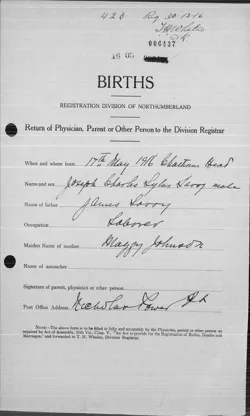 428 Reg 30-12-16
T H Whalen
D R
006437
16 05
BIRTHS
REGISTRATION DIVISION OF NORTHUMBERLAND
Return of Physician, Parent or Other Person to the Division Registrar
When and where born 17th May 1916 Chatham Head
Name and sex Joseph Charles Savoy male
Name of father James Savoy
Occupation Laborer
Maiden Name of mother Maggy Johnson
Name of informer
Signature of parent, physician or other person.
Post Office Address Nicholas Power
NOTE—The above form is to be filled in fully and accurately by the Physician, parent or other person as
required by Act of Assembly, Chap. V. The Act to provide for the Registration of Births, Deaths and
Marriages," and forwarded to T. H. Whalen, Division Registrar.